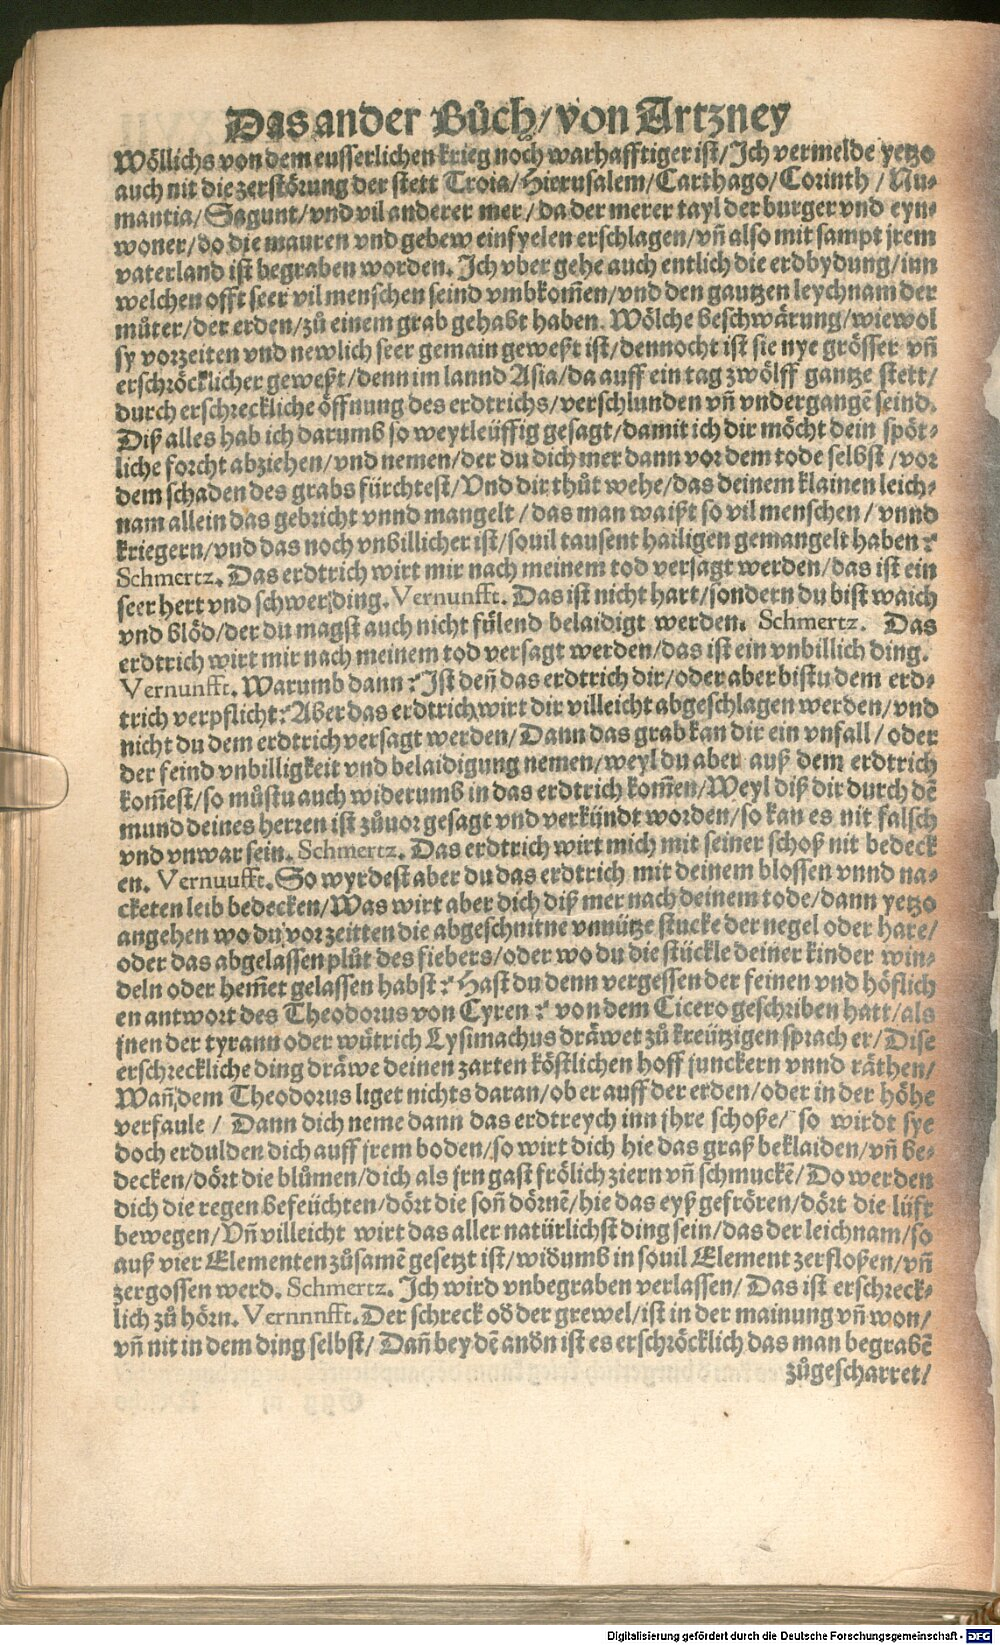 Das ander Bůch/ von Artzney
Wöllichs von dem eusserlichen krieg noch warhafftiger ist/ Ich vermelde yetzo
auch nit die zerstörung der stett Troia/ Hierusalem/ Carthago/ Corinth / Nu-
mantia/ Sagunt/ vnd vil anderer mer / da der merer tayl der burger vnd eyn-
woner/ do die mauren vnd gebew einfyelen erschlagen/ vñ also mit sampt jrem
vaterland ist begraben worden. Ich vber gehe auch entlich die erdbydung/ inn
welchen offt seer vil menschen seind vmbkom̃en/ vnd den gantzen leychnam der
můter/ der erden/ zů einem grab gehabt haben. Wölche beschwärung/ wiewol
sy vorzeiten vnd newlich seer gemain geweßt ist/ dennocht ist sie nye grösser vñ
erschröcklicher geweßt/ denn im lannd Asia/ da auff ein tag zwölff gantze stett/
durch erschreckliche öffnung des erdtrichs/ verschlunden vñ vndergangẽ seind.
Diß alles hab ich darumb so weytleüffig gesagt/ damit ich dir möcht dein spöt-
liche forcht abziehen/ vnd nemen/ der du dich mer dann vor dem tode selbst / vor
dem schaden des grabs fürchtest/ Vnd dir thůt wehe/ das deinem klainen leich-
nam allein das gebricht vnnd mangelt / das man waißt so vil menschen / vnnd
kriegern/ vnd das noch vnbillicher ist/ souil tausent hailigen gemangelt haben?
Schmertz. Das erdtrich wirt mir nach meinem tod versagt werden/ das ist ein
seer hert vnd schwer ding. Vernunfft. Das ist nicht hart/ sondern du bist waich
vnd blöd/ der du magst auch nicht fülend belaidigt werden. Schmertz. Das
erdtrich wirt mir nach meinem tod versagt werden/ das ist ein vnbillich ding.
Vernunfft. Warumb dann? Ist deñ das erdtrich dir/ oder aber bistu dem erd-
trich verpflicht? Aber das erdtrich wirt dir villeicht abgeschlagen werden/ vnd
nicht du dem erdtrich versagt werden/ Dann das grab kan dir ein vnfall / oder
der feind vnbilligkeit vnd belaidigung nemen/ weyl du aber auß dem erdtrich
kom̃est/ so můstu auch widerumb in das erdtrich kom̃en/ Weyl diß dir durch dẽ
mund deines herren ist zůuor gesagt vnd verkündt worden/ so kan es nit falsch
vnd vnwar sein. Schmertz. Das erdtrich wirt mich mit seiner schoß nit bedeck
en. Vernuufft. So wyrdest aber du das erdtrich mit deinem blossen vnnd na-
cketen leib bedecken/ Was wirt aber dich diß mer nach deinem tode/ dann yetzo
angehen wo du vorzeitten die abgeschnitne vnnütze stucke der negel oder hare/
oder das abgelassen plůt des fiebers/ oder wo du die stückle deiner kinder win-
deln oder hem̃et gelassen habst? Hast du denn vergessen der feinen vnd höflich
en antwort des Theodorus von Cyren? von dem Cicero geschriben hatt/ als
jnen der tyrann oder wütrich Lysimachus dräwet zů kreützigen sprach er/ Dise
erschreckliche ding dräwe deinen zarten köstlichen hoff junckern vnnd räthen/
Wañ dem Theodorus liget nichts daran/ ob er auff der erden/ oder in der höhe
verfaule / Dann dich neme dann das erdtreych inn jhre schoße/ so wirdt sye
doch erdulden dich auff jrem boden/ so wirt dich hie das graß beklaiden/ vñ be-
decken/ dört die blůmen/ dich als jrn gast frölich ziern vñ schmuckẽ/ Do werden
dich die regen befeüchten/ dört die soñ dörnẽ/ hie das eyß gefrören/ dört die lüft
bewegen/ Vñ villeicht wirt das aller natürlichst ding sein/ das der leichnam/ so
auß vier Elementen zůsamẽ gesetzt ist/ widumb in souil Element zerfloßen/ vñ
zergossen werd. Schmertz. Ich wird vnbegraben verlassen/ Das ist erschreck-
lich zů hörn. Vernnnfft. Der schreck od̄ der grewel/ ist in der mainung vñ won/
vñ nit in dem ding selbst/ Dañ bey dẽ andn̄ ist es erschröcklich das man begrabẽ
zůgescharret/
Digitalisierung gefördert durch die Deutsche Forschungsgemeinschaft - DFG